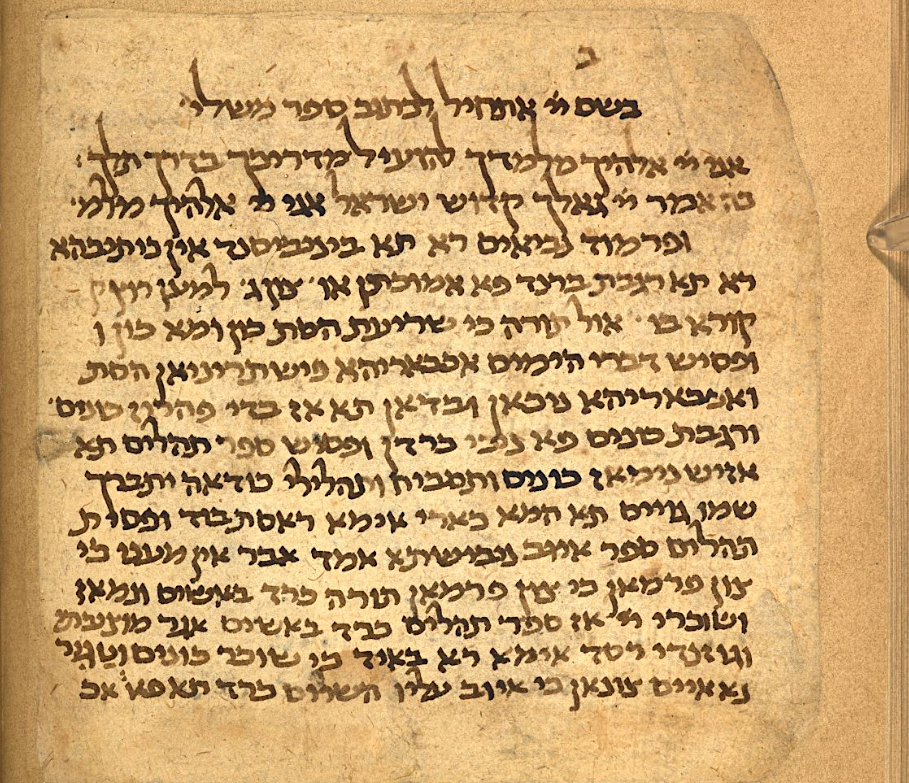 ב
בשם יי אתחיל לכתוב ספר משלי
אני יי אלהיך מלמדך להועיל מדריכך בדרך תלך :
כה אמר יי גואלך קדוש ישראל אני יי אלהיך מלמ׳
ופרמוד נביאים רא תא
רא תא רגבת ברנד פא אמוכתן או למען
קורא בו תורה כי שריעת הסת
ופסיש דברי הימים אכבאריהא הסת
ואכבאריהא ובדאן תא אז בדי פהריז כונים
ורגבת כונים פא ניכי כרדן ופסיש ספר תהלים תא
אזיש נימאז כונים ותסביח ותהלילי כודאה יתברך
שמו גויים תא המא כארי אימא ראסת בוד ופסי
תהלים ספר איוב נבישתא אמד אבר אין מעני כי
צון פרמאן כי צון פרמאן תורה כרד באשים ונמאז
ושוכרי יי אז ספר תהלים כרד באשים אגר מוציבתי
וגוזנדי רסד אימא רא באיד כי שוכר כונים
צונאן כי איוב עליו השלום כרד תא